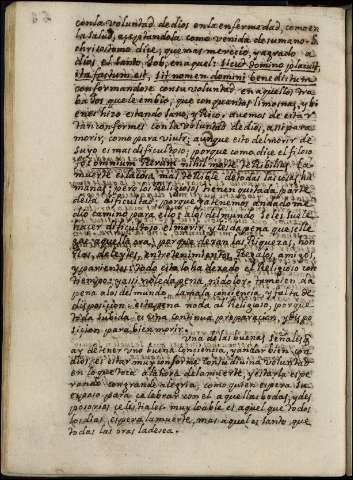 con la voluntad de dios en la enfermedad, como en
la salud, aceptandola como venida de su mano. S.
chrisostomo dice, que mas merecio, y agrado a
dios el santo Job, en aquel: Sicut Domino placuit
ita factum est, Sit nomen domini benedictum
conformandose con su voluntad en aquellos tra
bajos que le embio, que con quantas limosnas, y bi
enes hizo estando sano, y Rico; avemos de estar
tan conformes con la voluntad de dios, assi para
morir, como para vivir; aunque esto del morir de
suyo es mas dificultoso; porque como dice el filoso
omnium rerum nihil morte terribilius. La
muerte es la cosa mas terrible de todas las cosas hu
manas; pero los Religiosos tienen quitada parte
della dificultad; porque ya tenemos andado me
dio camino para ello: a los del mundo se les suele
hacer dificultoso el morir, y les da pena que se lle
gue aquella ora, porque dexan las Riquezas, hon
ras, deleytes, entretenimientos, Regalos, amigos,
y parientes. Todo esto lo ha dexado el Religioso con
tiempo; y assi no le da pena, ni dolor; tambien da
pena a los del mundo la mala conciencia, y falta de
disposicion: esta pena no da al Religioso, porque
toda su vida es una continua preparacion, y dispo
sicion para bien morir.
Una de las buenas señales q
ay de tener uno buena conciencia, y andar bien con
dios, es estar muy conforme con su divina voluntad
en lo que toca a la hora de la muerte, y estarla espe
rando con grande alegria, como quien espera su
esposo para celebrar con el aquellas bodas, y des
posorios celestiales. muy loable es aquel que todos
los dias espera la muerte, mas aquel es santo, que
todas las oras la desea.